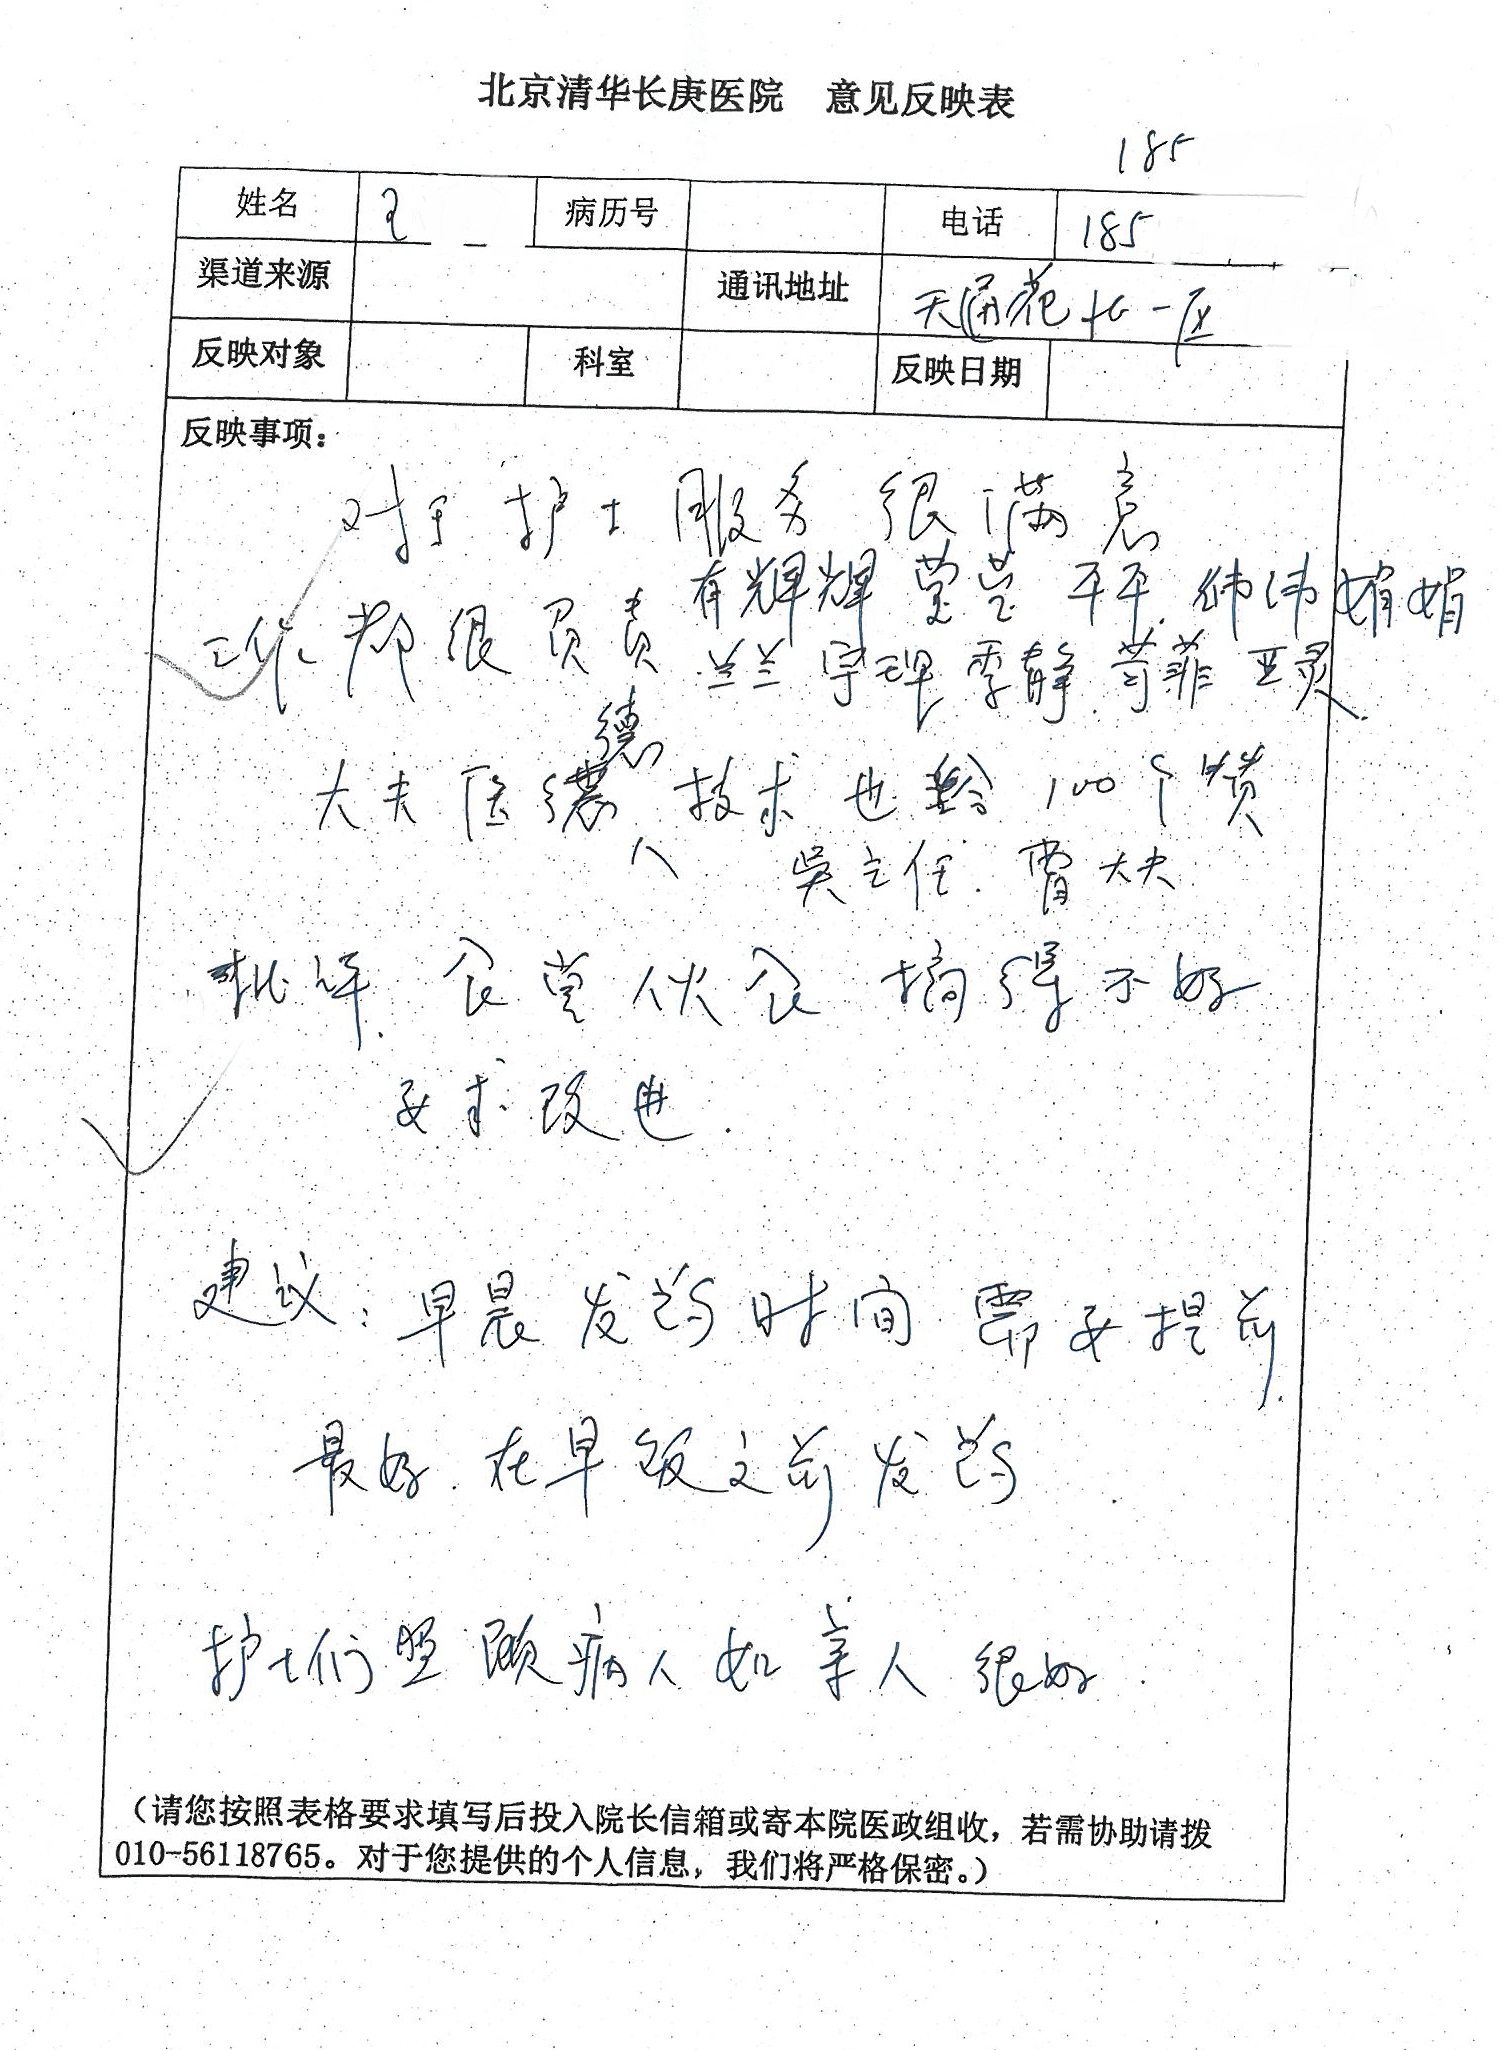 北京清华长庚医院 意见反映表
185
姓名 王 病历号 电话 185
渠道来源 通讯地址 天通苑北一区
反映对象 科室 反映日期
反映事项：
对于护士服务很满意
有辉辉 莹莹 平平 伟伟 娟娟
工作都很负责 兰兰 宇琿 季静 菲 亚灵
德
大夫医德 技术也给100个赞
人 吴主任. 曹大夫
批评. 食堂伙食搞得不好
要求改进.
建议：早晨发药时间需要提前.
最好.在早饭之前发药.
护士们照顾病人如亲人很好.
（请您按照表格要求填写后投入院长信箱或寄本院医政组收，若需协助请拨
010-56118765。对于您提供的个人信息，我们将严格保密。）